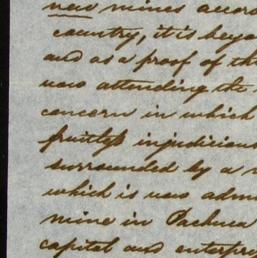 new mines accord
country, it is beyo
and as a proof of th
now attending the
concern in which
fruitless injudicious
surrounded by a
which is now adm
mine in Pachuca
capital and enterpr